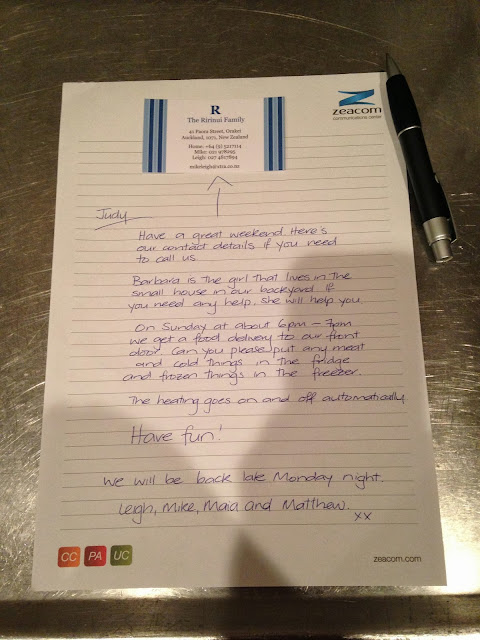 zeacom
communications center
R
The Ririnui Family
Auckland, 1071, New Zealand
Judy
Have a great weekend Here's
our contact details if you need
to call us
Barbara is the girl that lives in the
small house in our backyard If
you need any help, she will help you.
On Sunday at about 6pm – 7pm
we get a food delivery to our front
door. Can you please put any meat
and cold things in the fridge
and frozen things in the freezer.
The heating goes on and off automatically
Have fun!
We will be back late Monday night.
Leigh, Mike, Maia and Matthew.
xx
CC PA UC
zeacom.com